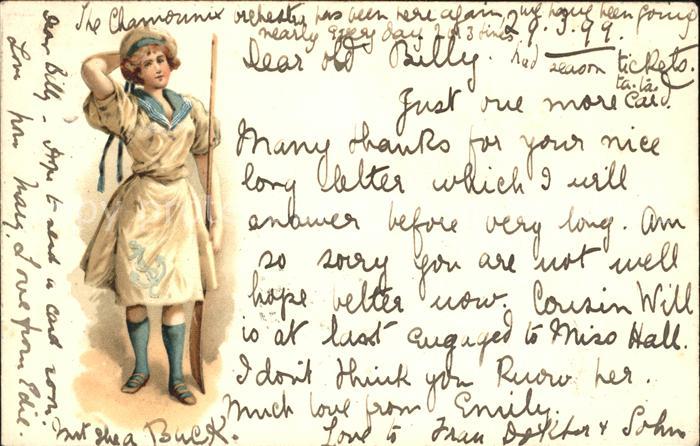 The Chamounix orchestra has been here again, & we have been going
nearly every day 2 or 3 times.
had season tickets.
ta-ta.
29.3.99.
Dear old Billy.
Just one more Card.
Many thanks for your nice
long letter which I will
answer before very long. Am
so sorry you are not well
hope better now. Cousin Will
is at last engaged to Miss Hall.
I don't think you know her.
Much love from Emily.
Love to Frau & John
Dear Billy - Hope to send a card soon
Love from Mary. Love from Edie.
Isn't she a Buck.